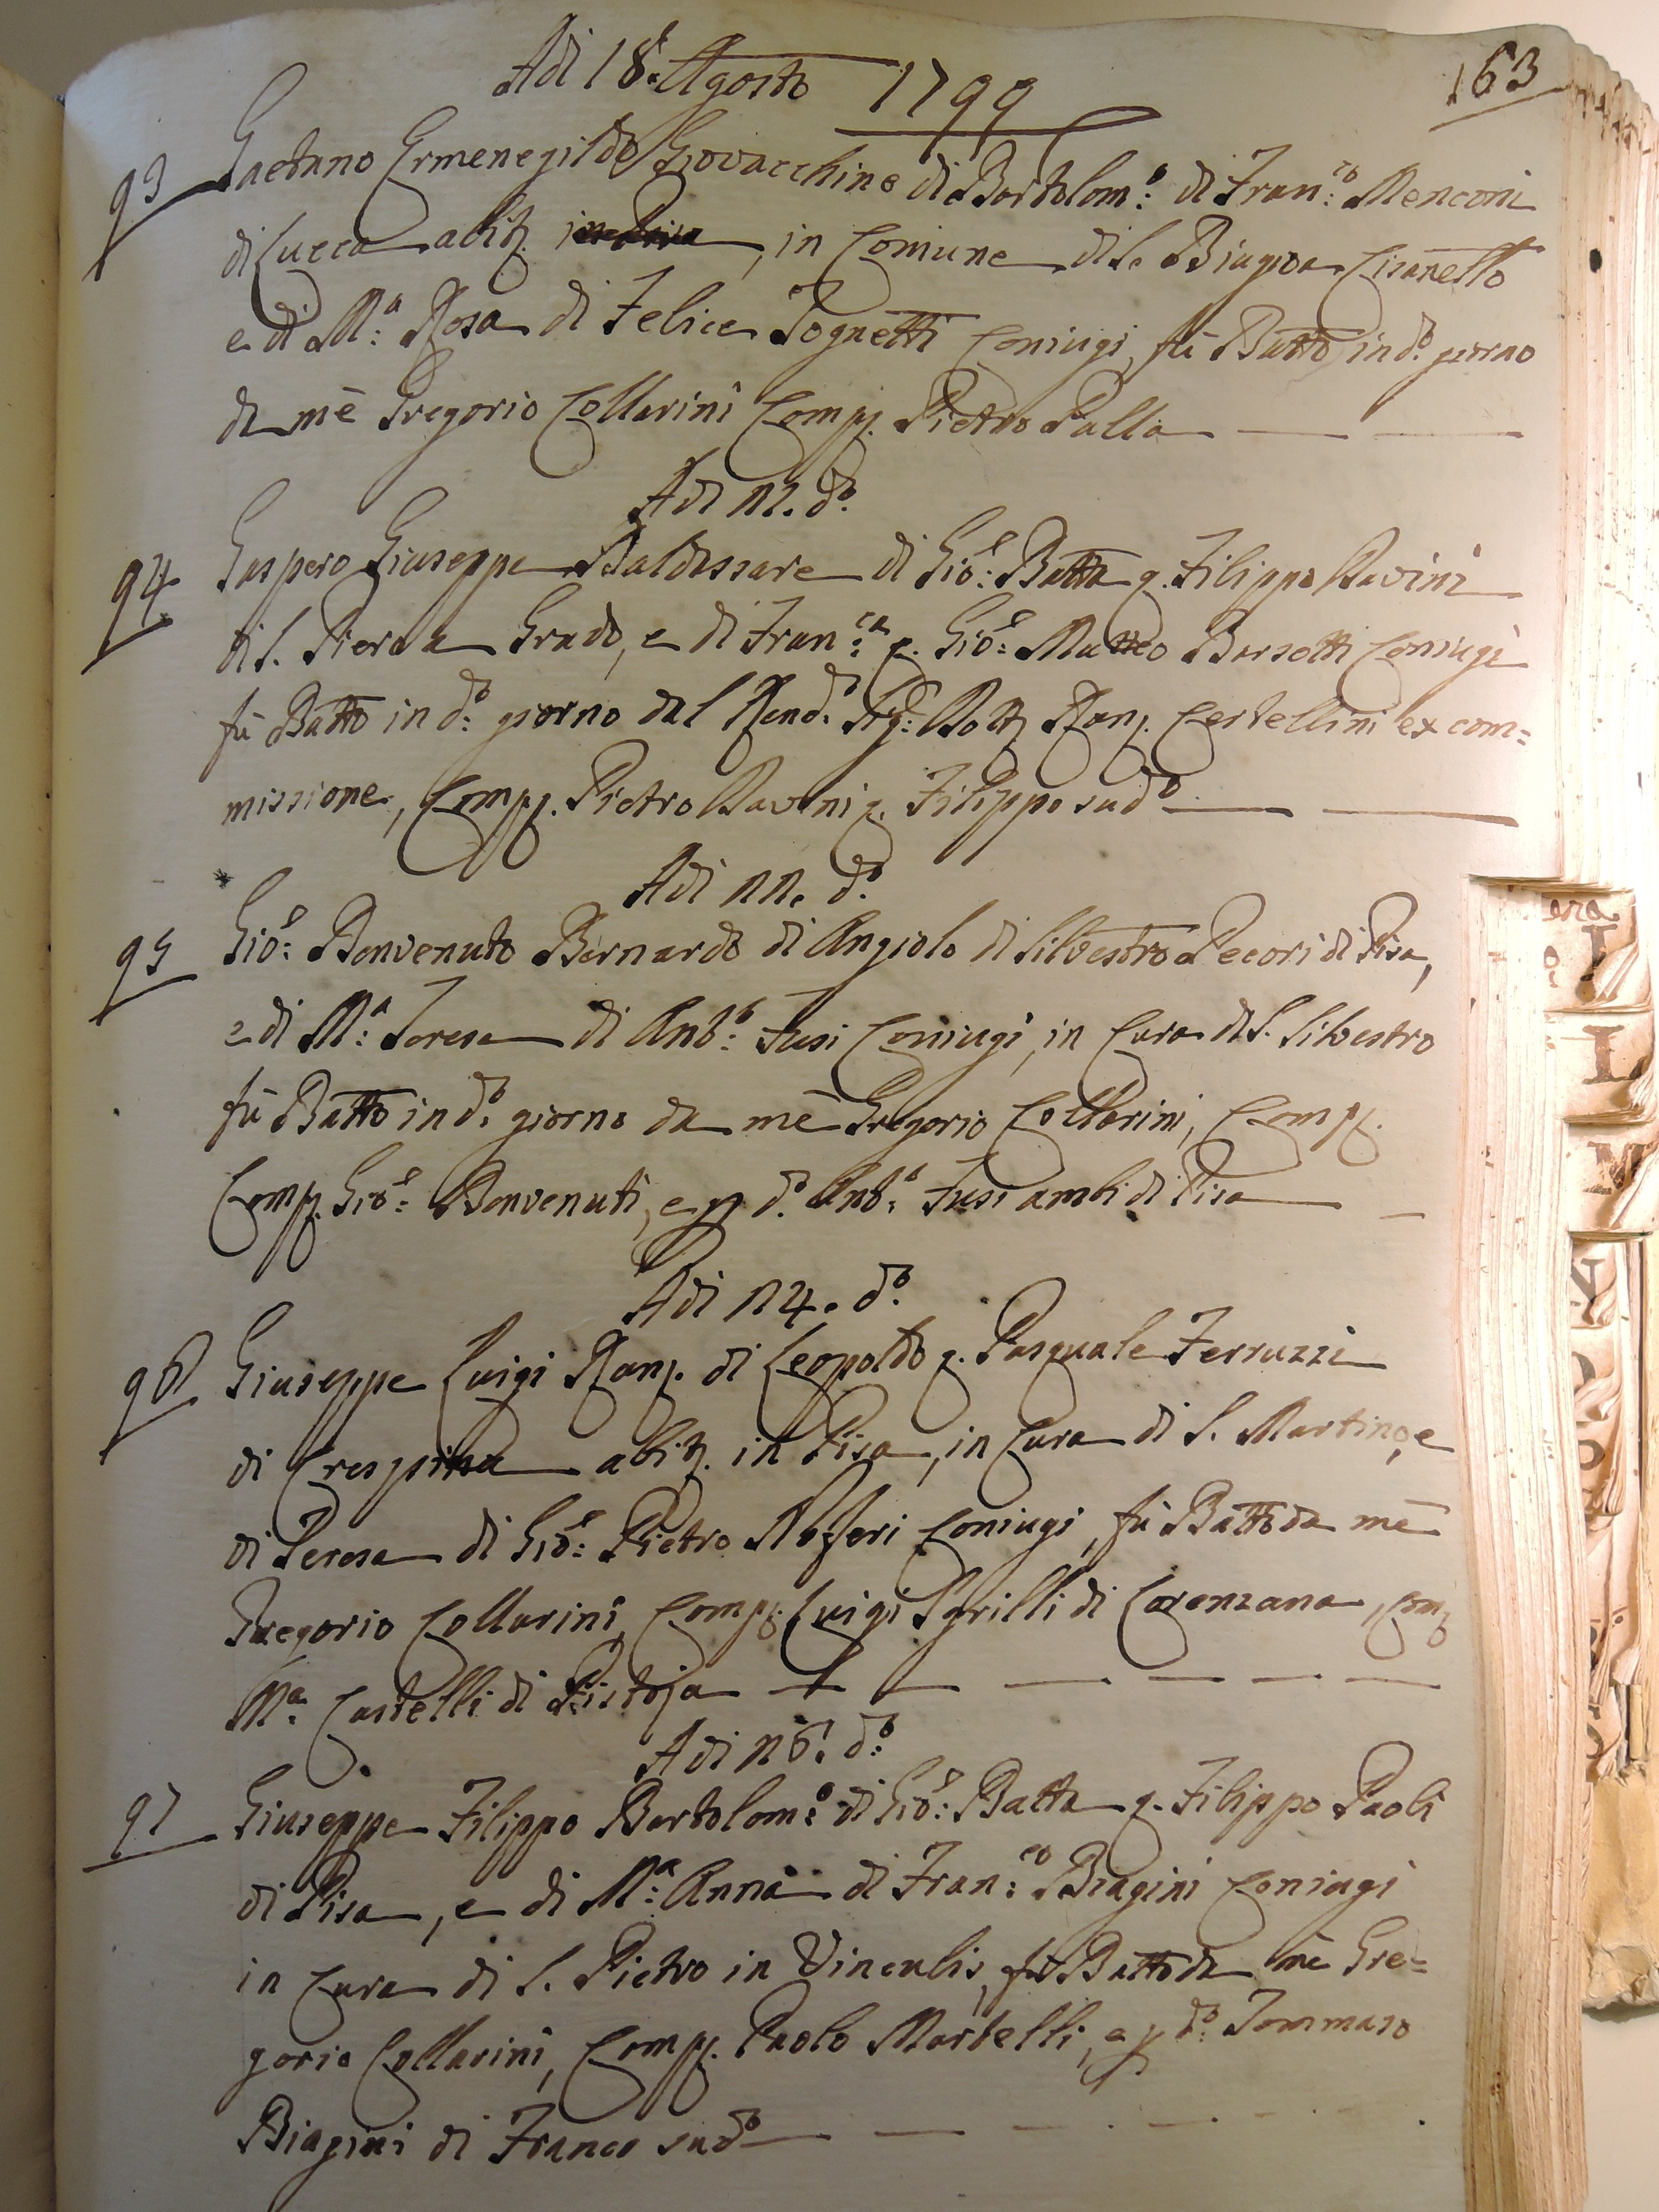 163
Adi 18. Agosto 1799
93 Gaetano Ermenegildo Giovacchino di Bartolom.o di Fran.co Menconi
di Lucca abit. in Pisa, in Comune di S. Biagio a Cisanello
e di M.a Rosa di Felice Tognetti Coniugi, fù Batto in do. giorno
da mè Gregorio Collarini Comp. Pietro Palla
Adi 21. do.
94 Gaspero Giuseppe Baldassare di Gio: Batta q. Filippo Davini
di S. Piero a Grado, e di Fran.ca q. Gio: Matteo Barsotti Coniugi
fù Batto in do. giorno dal Rend. Sig: Dott Ran. Certellini ex com=
missione, Comp. Pietro Davini q. Filippo sudo
Adi 22. do.
95 Gio: Benvenuto Bernardo di Angiolo di Silvestro Pecori di Pisa,
e di M.a Teresa di Ant.o Fusi Coniugi, in Cura di S. Silvestro
fù Batto in do. giorno da mè Gregorio Collarini, Comp.
Comp. Gio: Benvenuti, e p do. Ant.o Fusi ambi di Pisa
Adi 24. do.
96 Giuseppe Luigi Ran. di Leopoldo q. Pasquale Ferruzzi
di Crespina abit. in Pisa, in Cura di S. Martino, e
di Teresa di Gio: Pietro Noferi Coniugi, fù Batto da mè
Gregorio Collarini, Comp. Luigi Sgrilli di Lorenzana, Com
M.a Castelli di Pistoja
Adi 26. do.
97 Giuseppe Filippo Bartolom.o di Gio: Batta q. Filippo Paoli
di Pisa, e di M.a Anna di Fran.co Biagini Coniugi
in Cura di S. Pietro in Vinculis, fù Batto da mè Gre=
gorio Collarini, Comp. Paolo Martelli, e p do. Tommaso
Biagini di Franco sudo